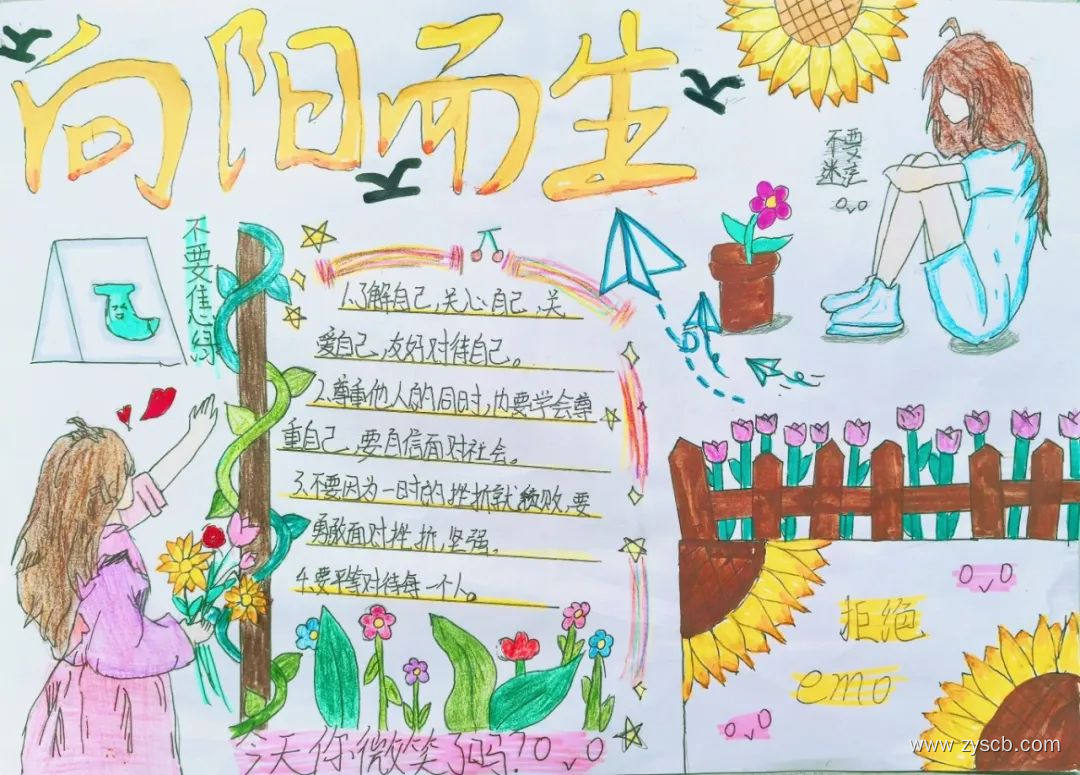 向阳而生
不要
迷茫
0,0
不要焦绿
1.了解自己,关心自己,关
爱自己,友好对待自己。
2.尊重他人的同时,也要学会尊
重自己,要自信面对社会。
3.不要因为一时的挫折就颓败,要
勇敢面对挫折,坚强。
4.要平等对待每一个人。
0,0
拒绝
emo
0,0
今天你微笑了吗?0,0
www.zyscb.com